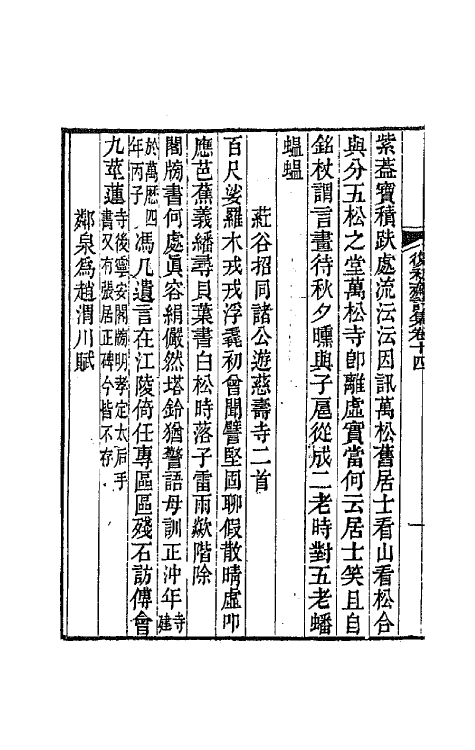 復初齋詩集卷十四
紫葢寶積趺處流沄沄因訊萬松舊居士看山看松合
與分五松之堂萬松寺卽離虛實當何云居士笑且自
銘杖謂言畫待秋夕曛與子扈從成二老時對五老蟠
蝹蝹
莊谷招同諸公遊慈壽寺二首
百尺娑羅木戎戎浮毳初曾聞譬堅固聊假散晴虛叩
應芭蕉義繙尋貝葉書白松時落子雷雨歘階除
閣牓書何處眞容絹儼然塔鈴猶警語母訓正沖年寺建
於萬歷四年丙子馮几遺言在江陵倚任專區區殘石訪傅會
九莖蓮寺後寧安閣牓明孝定太后手書又有張居正碑今皆不存
鄰泉爲趙渭川賦